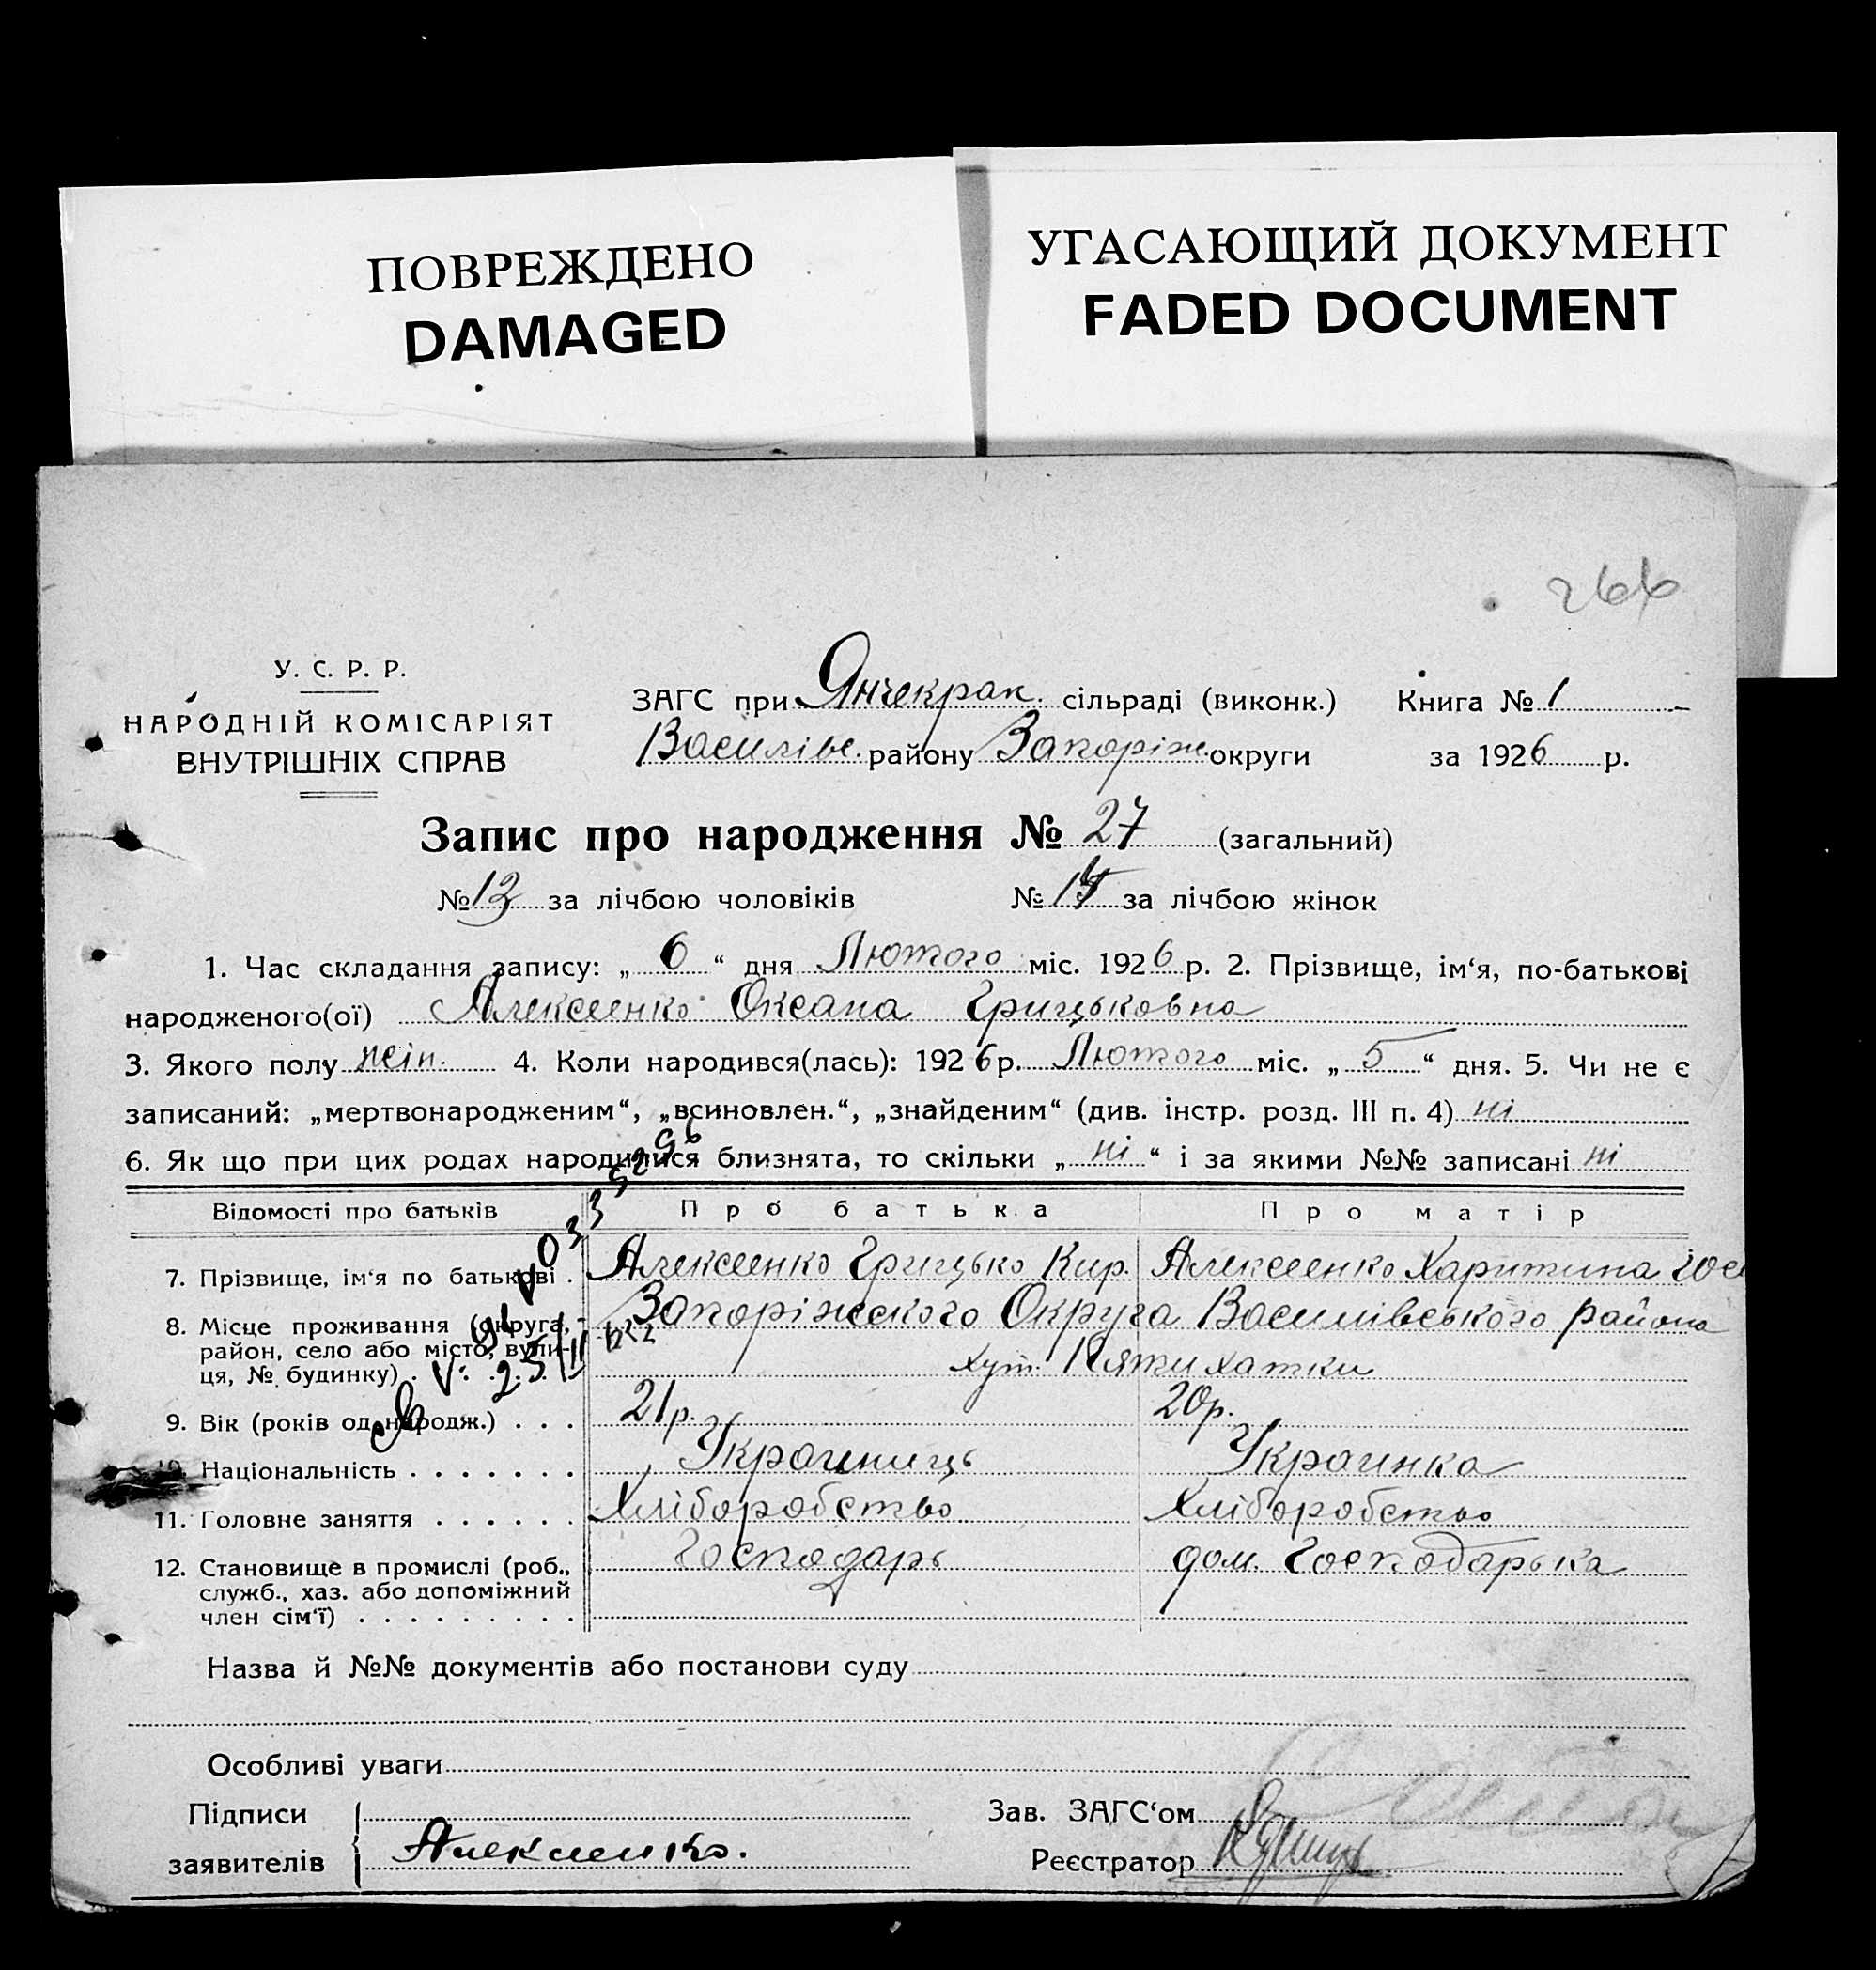 ПОВРЕЖДЕНО
DAMAGED
УГАСАЮЩИЙ ДОКУМЕНТ
FADED DOCUMENT
266
У. С. Р. Р.
НАРОДНІЙ КОМІСАРІЯТ
ВНУТРІШНІХ СПРАВ
ЗАГС при Янчекрак. сільраді (виконк.) Книга № 1
Василівс. району Запоріж. округи за 1926 р.
Запис про народження № 27 (загальний)
№ 13 за лічбою чоловіків № 14 за лічбою жінок
1. Час складання запису: „ 6 “ дня Лютого міс. 1926 р. 2. Прізвище, ім‘я, по-батькові
народженого(ої) Алексеенко Оксана Грицьковна
3. Якого полу жін. 4. Коли народився(лась): 1926 р. Лютого міс. „ 5 “ дня. 5. Чи не є
записаний: „мертвонародженим“, „всиновлен.“, „знайденим“ (див. інстр. розд. III п. 4) ні
6. Як що при цих родах народилися близнята, то скільки „ ні “ і за якими №№ записані ні
Відомості про батьків Про батька Про матір
7. Прізвище, ім‘я по батькові . Алексеенко Грицько Кир. Алексеенко Харитина
8. Місце проживання (округа, Запоріжского Округа Василівського района
район, село або місто, вули-
ця, № будинку) . хут. Пятихатки
9. Вік (років од народж.) . . . 21 р. 20 р.
10. Національність . . . . . . . Украиниць Украинка
11. Головне заняття . . . . . . Хліборобство Хліборобство
12. Становище в промислі (роб., Господарь дом. Господарька
служб., хаз. або допоміжний
член сім‘ї) . . . . . . . . .
Назва й №№ документів або постанови суду
Особливі уваги
Підписи Зав. ЗАГС‘ом
заявителів Алексеенко. Реєстратор